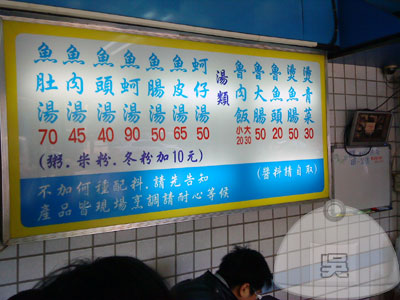 魚肚湯 70
魚肉湯 45
魚頭湯 40
魚蚵湯 90
魚腸湯 50
魚皮湯 65
蚵仔湯 50
湯類
魯肉飯 小20 大30
魯大腸 50
魯魚頭 20
燙魚腸 50
燙青菜 30
(粥.米粉.冬粉加10元)
不加何種配料.請先告知
(醬料請自取)
產品皆現場烹調請耐心等候
吳